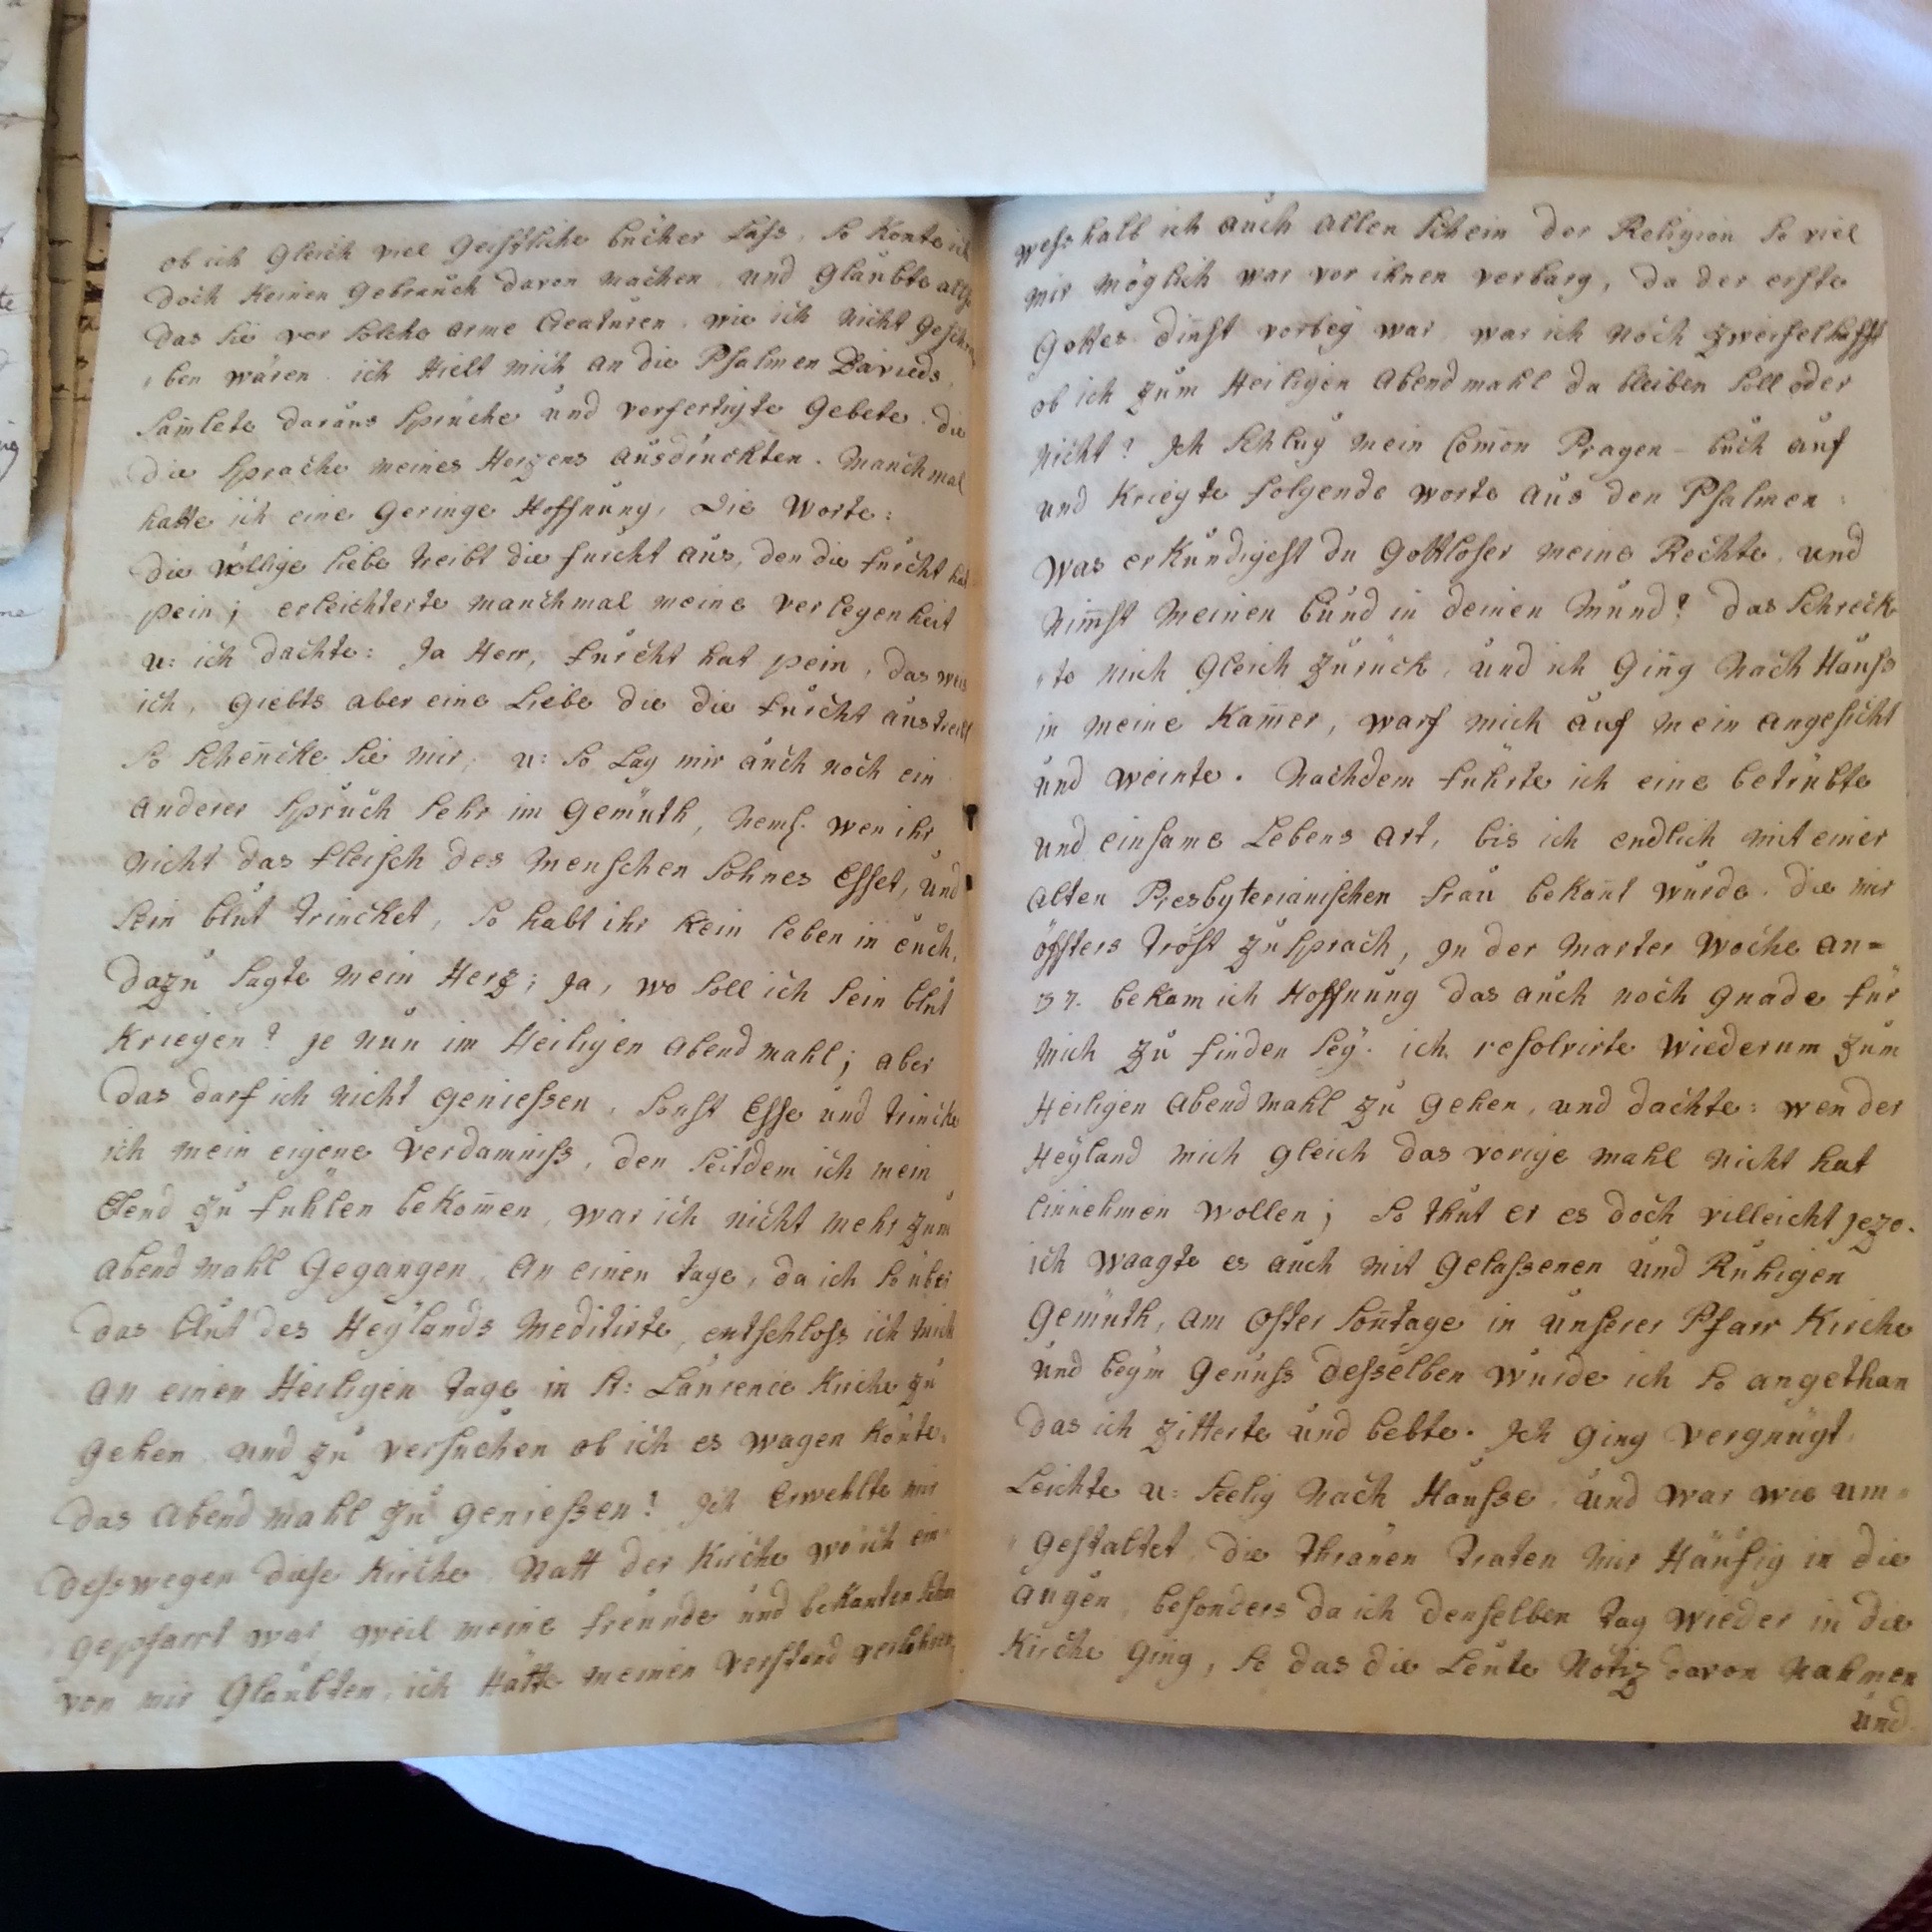 ob ich Gleich viel Geistliche bücher Lass, So Konte ich
doch Keinen Gebrauch davon machen, und Glaubte allz
das Sie vor Solche arme Creaturen, wie ich nicht Geschrie
ben wären. ich Hielt mich an die Psalmen Davieds,
Sam̄lete daraus Sprüche und verfertigte Gebete, die
die Sprache meines Herzens ausdruckten. Manchmal
hatte ich eine Geringe Hoffnung, Die Worte:
die völlige Liebe treibt die furcht aus, den die furcht hat
pein; erleichterte manchmal meine verlegenheit
u: ich dachte: Ja Herr, furcht hat pein, das weis
ich, Giebts aber eine Liebe die die furcht austreibt
So Schencke Sie mir, u: So Lag mir auch noch ein
anderer Spruch Sehr im Gemüth, Neml. wen ihr
nicht das fleisch des Menschen Sohnes Esset, und
Sein blut trincket, So habt ihr Kein leben in euch,
dazu Sagte mein Herz; Ja, wo Soll ich Sein blut
Kriegen? je nun im Heiligen abendmahl; aber
das darf ich nicht geniessen, Sonst Esse und trincke
ich mein eigene Verdamniss, den Seitdem ich mein
Elend zu fühlen bekom̄en, war ich nicht mehr zum
abendmahl Gegangen, An einen tage, da ich So über
das blut des Heÿlands Meditirte, entschloss ich mich
an einen Heiligen tage in St: Laurence Kirche zu
gehen, und zu versuchen ob ich es wagen könte,
das abendmahl zu geniessen! Ich Erwehlte mir
desswegen diese Kirche, Statt der Kirche wo ich ein=
gepfarrt war weil meine freunde und bekanten Schon
von mir Glaubten, ich Hätte meinen Verstand verlohren,
wesshalb ich auch allen Schein der Religion So viel
mir möglich war vor ihnen verbarg, da der erste
Gottes dinst vorbeÿ war, war ich noch zweifelhafft
ob ich zum Heiligen abendmahl da bleiben Soll oder
nicht? Ich Schlug mein Com̄on Prayer-buch auf
und Kriegte folgende worte aus den Psalmen:
Was erkundigest du Gottloser meine Rechte, und
nim̄st meinen bund in deinen Mund? das Schreck
te mich Gleich zurück, und ich Ging nach Hauss
in meine Kam̄er, warf mich auf mein angesicht
und weinte. Nachdem führte ich eine betrübte
und einsame Lebens art, bis ich endlich mit einer
alten Presbyterianischen frau bekan̄t wurde, die mir
öffters trost zusprach, In der Marter Woche an=
37. bekam ich Hoffnung das auch noch gnade für
mich zu finden Seÿ. ich resolvirte wiederum zum
Heiligen abendmahl zu gehen, und dachte: wen der
Heÿland mich gleich das vorige mahl nicht hat
einnehmen wollen; So thut er es doch villeicht jezo.
ich waagte es auch mit Gelassenen und Ruhigen
Gemüth, am Oster Son̄tage in unserer Pfarr Kirche
und beÿm genuss desselben wurde ich So angethan
das ich zitterte und bebte. Ich ging vergnügt,
Leichte u: Seelig nach Hausse, und war wie um=
gestaltet, die thränen traten mir Häufig in die
augen, besonders da ich denselben tag wieder in die
Kirche ging, So das die Leute Notiz davon nahmen
und